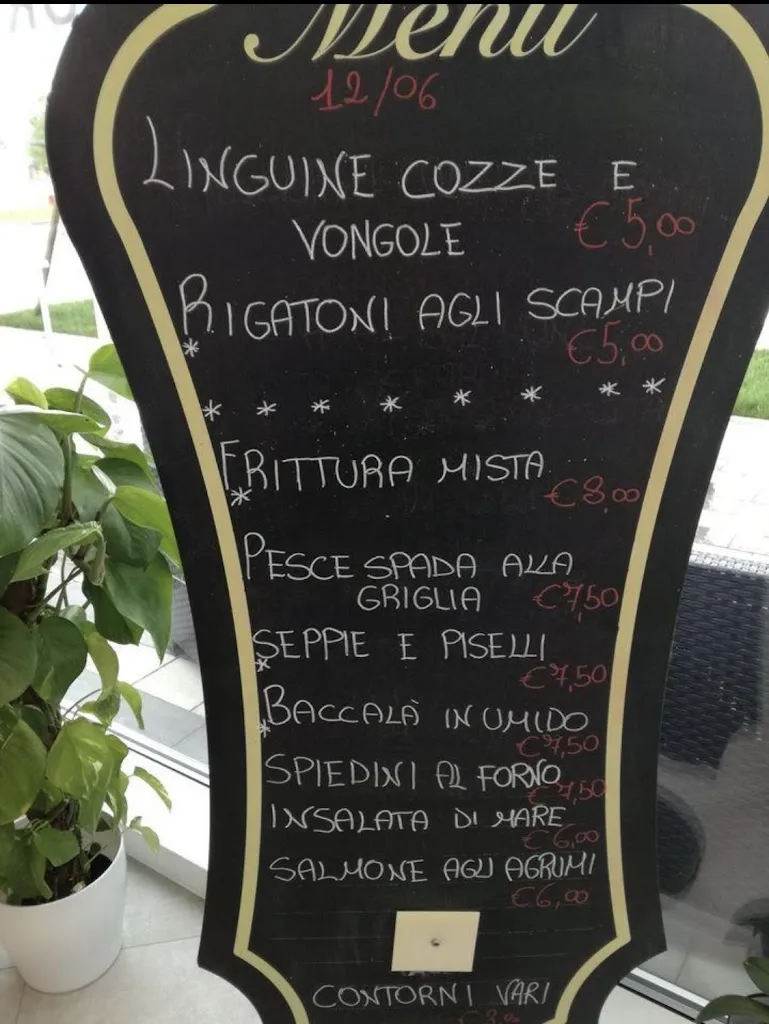 Menù
12/06
LINGUINE COZZE E
VONGOLE €5,00
RIGATONI AGLI SCAMPI
* €5,00
* * * * * * * *
FRITTURA MISTA
* €8,00
PESCE SPADA ALLA
GRIGLIA €7,50
SEPPIE E PISELLI
* €7,50
BACCALÀ IN UMIDO
* €7,50
SPIEDINI AL FORNO
€7,50
INSALATA DI MARE
€6,00
SALMONE AGLI AGRUMI
€6,00
CONTORNI VARI